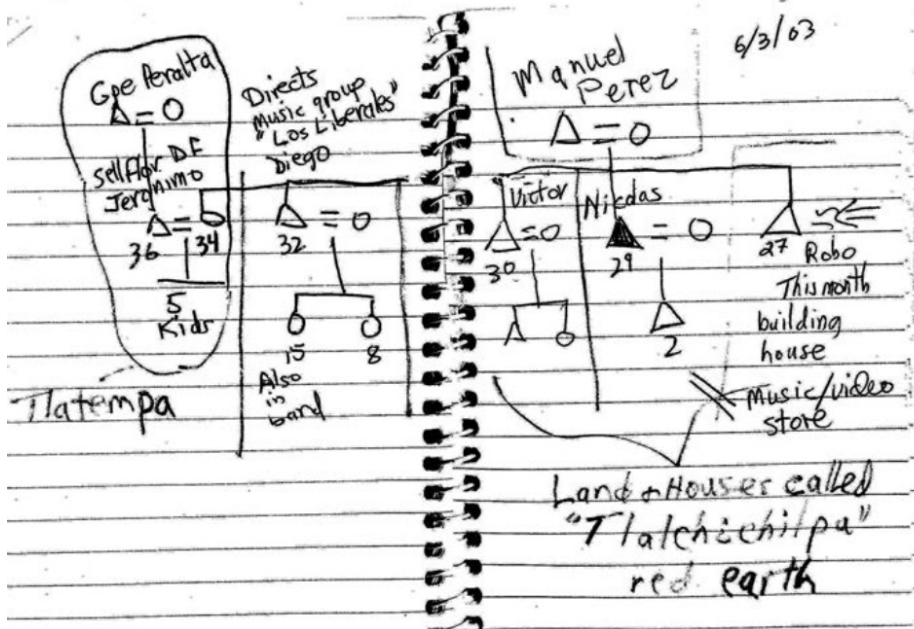 Gpe Peralta
Sell Flor DF
Jeronimo
36
34
5
Kids
Tlatempa
Directs
Music group
"Los Liberales"
Diego
32
15
8
Also
in
band
6/3/03
Manuel
Perez
Victor
30
Nikolas
29
2
27
Robo
This month
building
house
Music/video
store
Land + Houses called
"Tlalchichilpa"
red earth